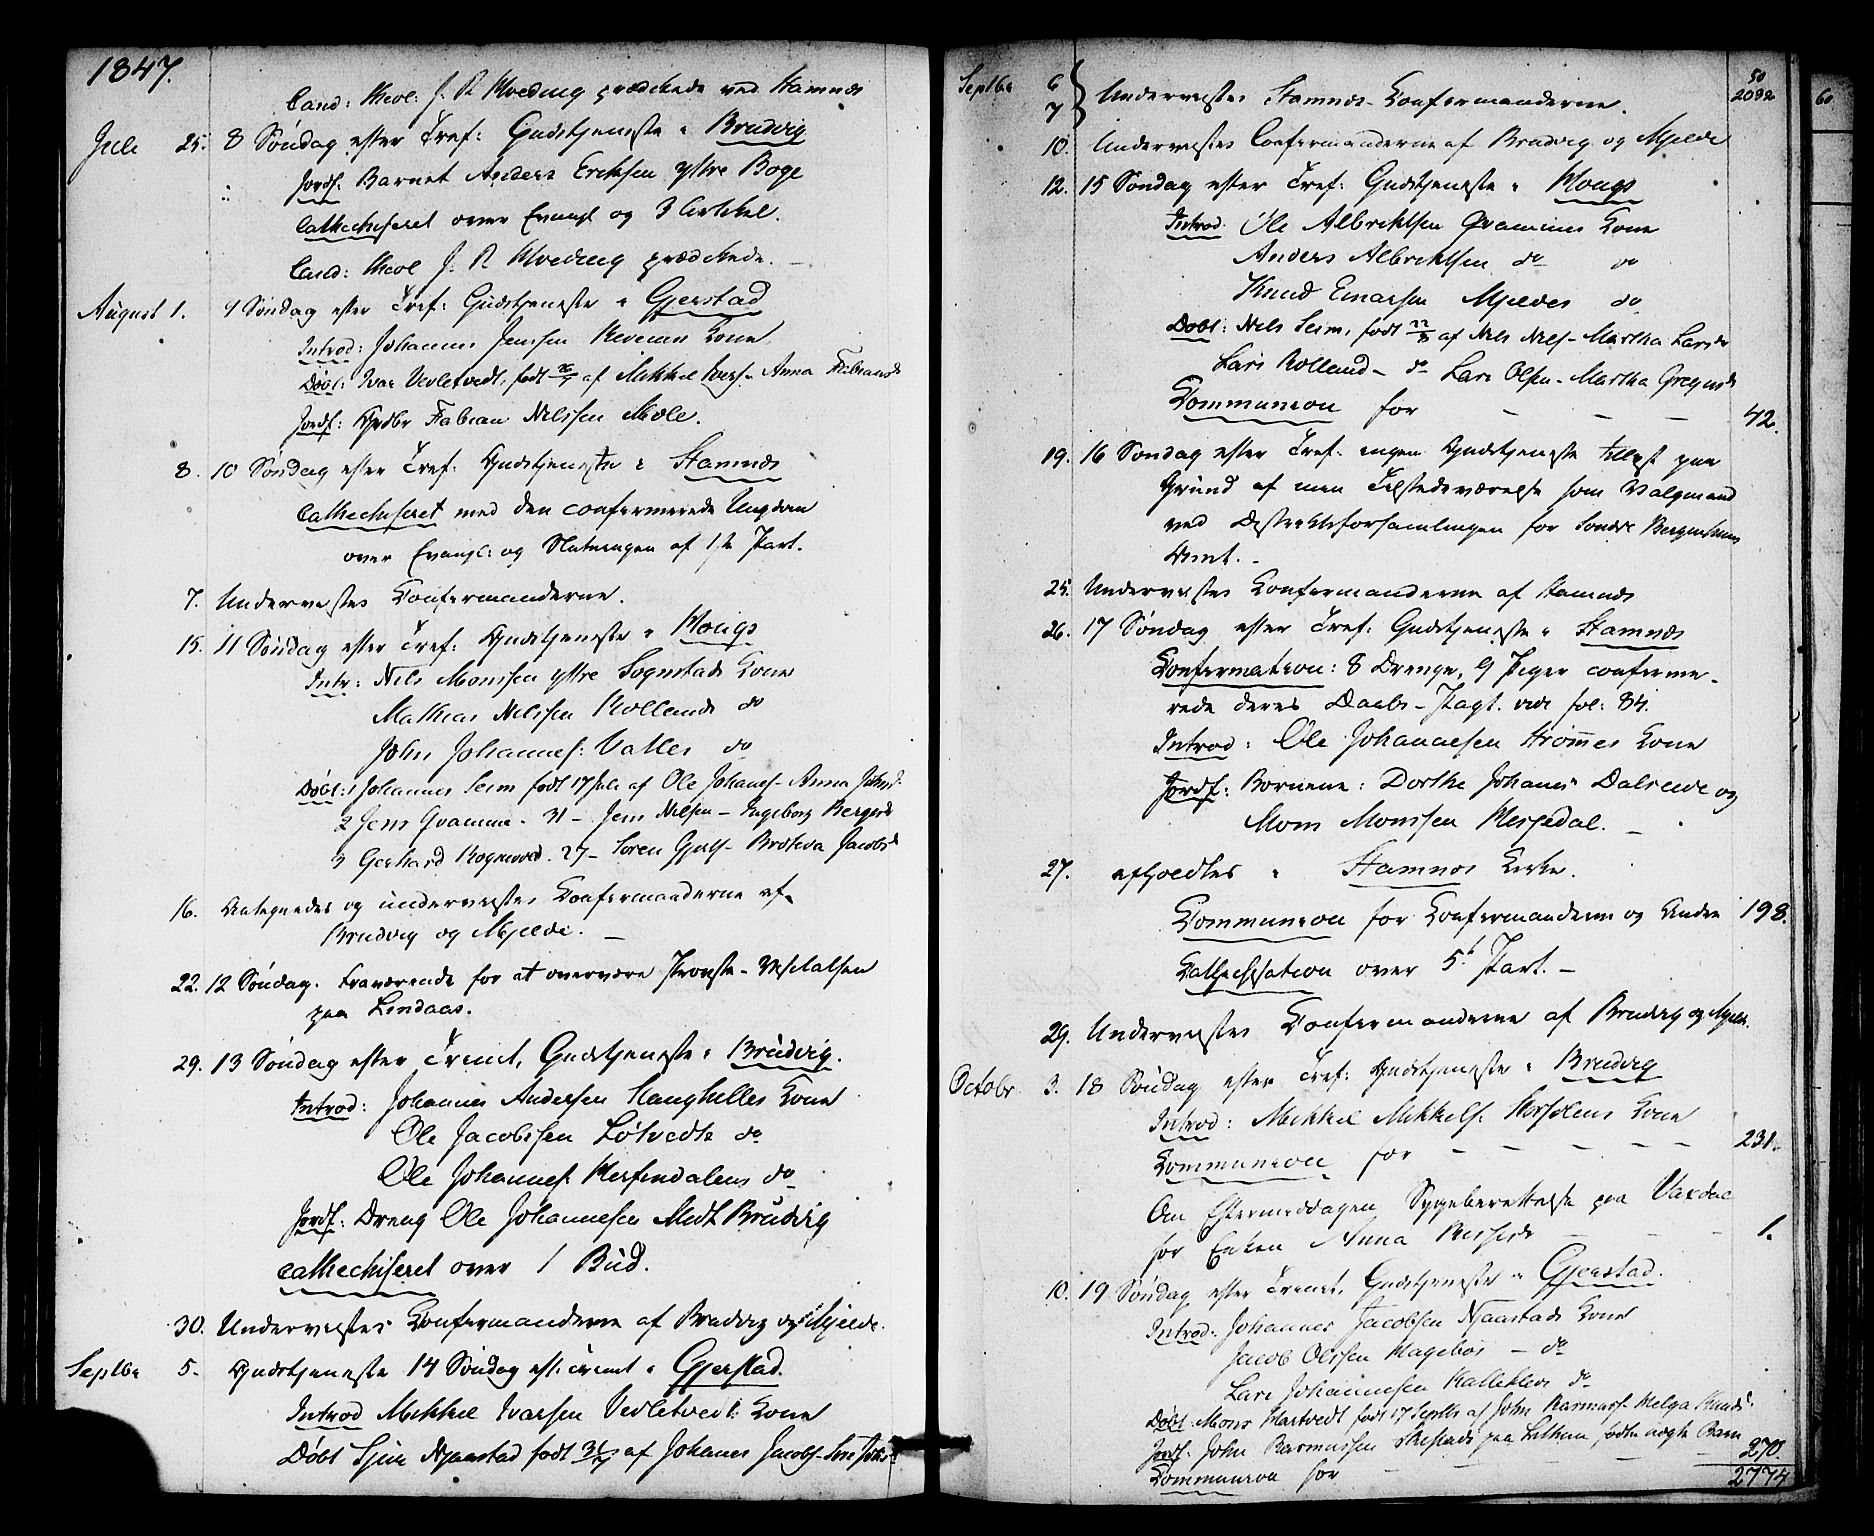 1847.
Cand: theol: J. R. Kveding prædikede ved Stamnes
Juli 25. 8 Søndag efter Tref: Gudstjeneste i Brudvig
Jordf: Barnet Anders Eriksen ytre Boge
Cathechiseret over Evangl og 3 Artikel.
Cand: theol J. R. Kveding prædikede. –
August 1. 9 Søndag efter Tref: Gudstjeneste i Gjerstad
Introd: Johannes Jensen Kone
Døbt: Ivar Vevletvedt, født af Mikkel Ivers- Anna Fabiansd
Jordf: Fabian Nilssen Mæle.
8. 10 Søndag efter Tref: Gudstjeneste i Stamnæs
Cathechiseret med den confirmerede Ungdom
over Evangl: og Slutningen af 1ste Part.
7. Underviistes Confirmanderne.
15. 11 Søndag efter Tref: Gudstjeneste i Hougs
Intr: Nils Monssen ytre Sognstads Kone
Mathias Nilssen Rollands do
John Johannes: Valles do
Døbt: 1 Johannes Seim født 17 Juli af Ole Johanes- Anna Johnsd:
2 Jens Qvamme. 31 – Jens Nilsen – Ingeborg Bergesd
3 Gerhard Rognvod. 27 – Søren Gjuls- Brithva Jacobsd
16. Antegnedes og underviistes Confirmanderne af
Brudvig og Mjelde. –
22. 12 Søndag. Fraværende for at overvære Provste-Visitatsen
paa Lindaas.
29. 13 Søndag efter Trinit, Gudstjeneste i Brudvig.
Introd: Johannes Andersen Stanghelles Kone
Ole Jacobsen Løtvedts do
Ole Johannes: Hesjendalens do
Jordf: Dreng Ole Johannesen Midt Brudvig
catthechiseret over 1 Bud.
30. Underviistes Confirmanderne af Brudvig og Mjelde.
Septbr 5. Gudstjeneste 14 Søndag eft: Trinit i Gjerstad.
Introd Mikkel Ivarsen Vevletvedt: Kone
Døbt Sjur Njaastad født af Johanes Jacobs-
Septbr 6
7 } Underviistes Stamnes-Confirmanderne.
50
2032
10. Underviistes Confirmanderne af Brudvig og Mjelde
12. 15 Søndag efter Tref: Gudstjeneste i Hougs
Introd. Ole Albriktsen Qvammes Kone
Anders Albriktsen do do
Knud Einarsen Mjeldes do
Døbt: Nils Seim, født af Nils Nils- Martha Larsdr
Lars Rolland – do Lars Olsen – Martha Gregersd
Communion for – – – 42.
19. 16 Søndag efter Tref. ingen Gudstjeneste tillyst paa
Grund af min Tilstedeværelse som Valgmand
ved Distriktsforsamlingen for Søndre Bergenhuus
Amt. –
25. Underviistes Confirmanderne af Stamnes
26. 17 Søndag efter Tref: Gudstjeneste i Stamnæs
Confirmation: 8 Drenge, 9 Piger confirme-
rede deres Daabs-Pagt. vide fol: 84.
Introd: Ole Johannesen Strømmes Kone
Jordf: Børnene: Dorthe Johanes Dalseide og
Mons Monssen Hesjedal. –
27. afholdtes i Stamnes Kirke.
Communion for Confirmanderne og Andre 198.
Cathechisation over 5te Part. –
29. Underviistes Confirmanderne af Brudvig og Mjelde.
Octobr 3. 18 Søndag efter Tref: Gudstjeneste i Brudvig
Introd: Mikkel Mikkels: Kone
Communion for – – – – – 231.
Om Eftermiddagen Sygeberettelse paa Vaxdal
for Enken Anna – – – 1.
10. 19 Søndag efter Trinit. Gudstjeneste i Gjerstad.
Introd: Johannes Jacobsen Njaastads Kone
Jacob Olssen Hageboes – do
Lars Johannesen Kalleklevs do
Døbt Mons Hartvedt født 17 Septbr af John Rasmuss- Helga Knuds:
Jordf: John Rasmussen paa
Communion for – – – 270.
2774
60